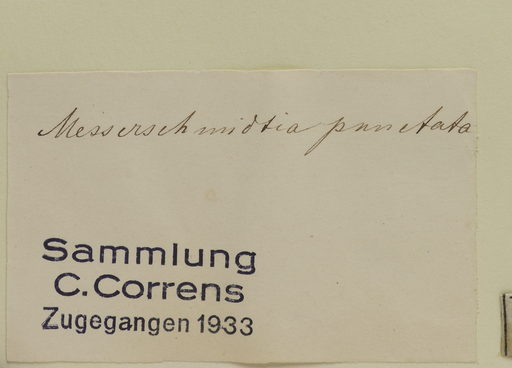 Messerschmidtia punctata
Sammlung
C. Correns
Zugegangen 1933